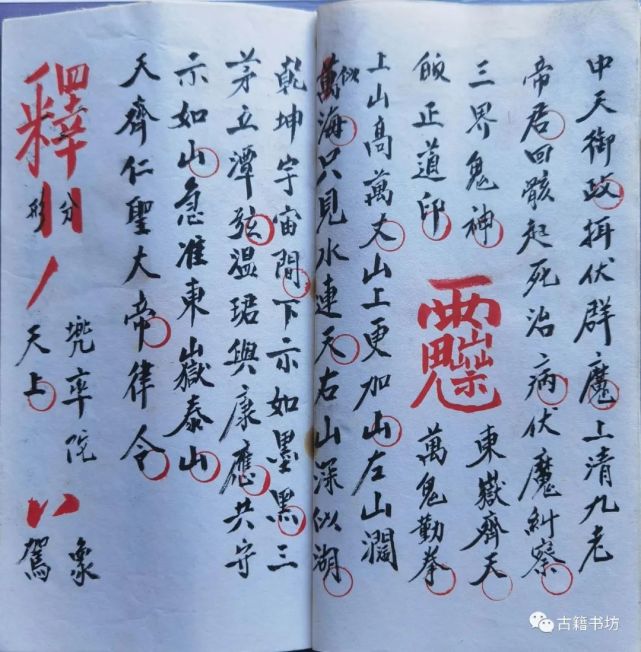 中天御政挕伏群魔上清九老
帝君回骸起死治病伏魔糾察
三界鬼神 東嶽齊天
皈正道印 萬鬼勤拳
上山高萬丈山上更加山左山濶
似萬海只見水連天右山深似湖
乾坤宇宙間下示如墨黑三
茅立潭弦温珺與康應共守
示如山急准東嶽泰山
天齊仁聖大帝律令
釋
分形
兜率院
天上
象
駕
古籍书坊